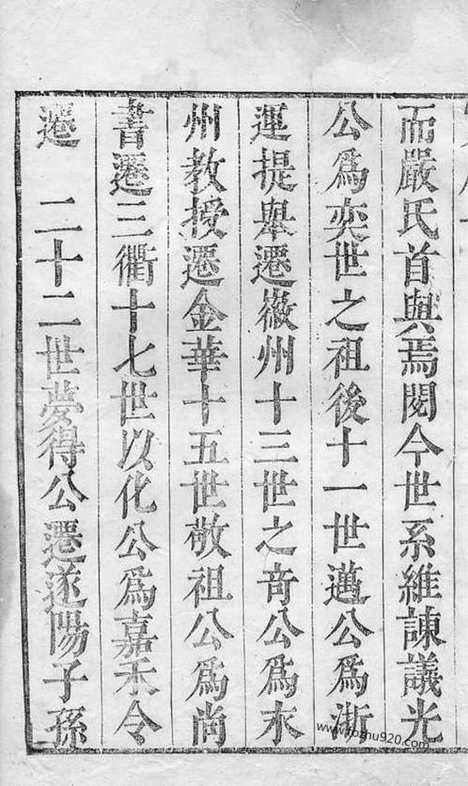 而嚴氏首與焉閱今世系維諫議光
公爲奕世之祖後十一世邁公爲浙
運提舉遷徽州十三世之奇公爲永
州教授遷金華十五世敬祖公爲尚
書遷三衢十七世以化公爲嘉禾令
遷　二十二世夢得公遷遂陽子孫
www.fozhu920.com